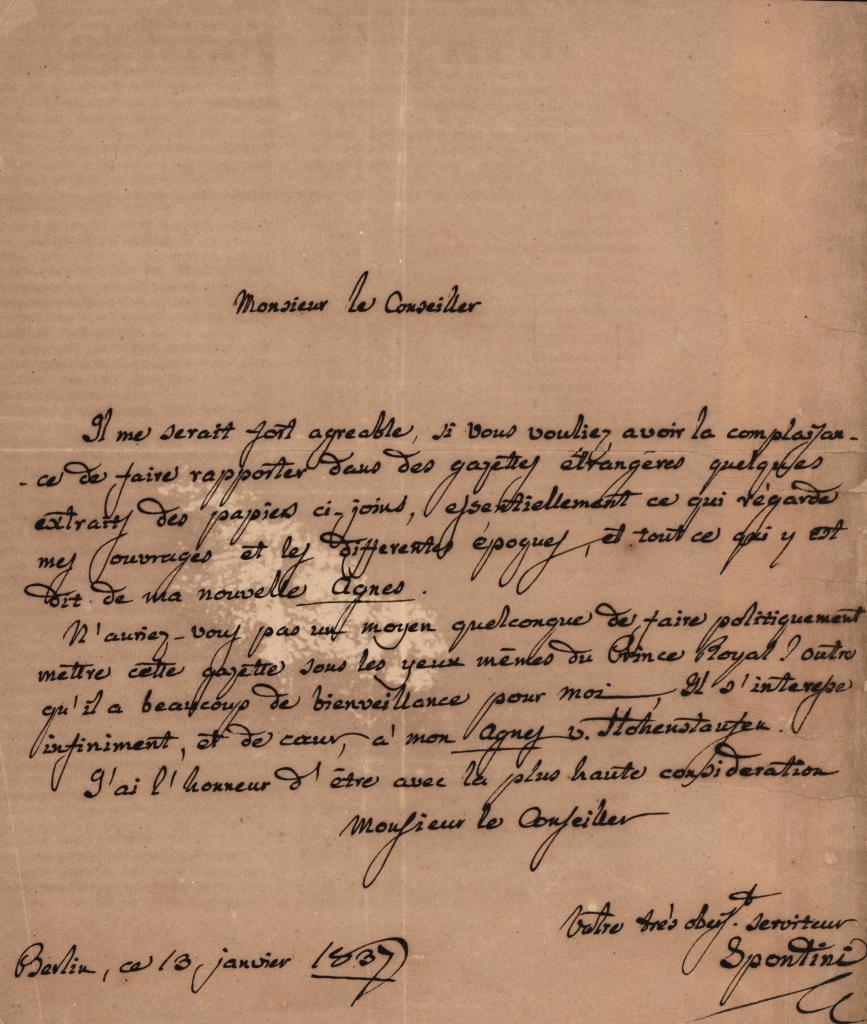 Monsieur le Conseiller
Il me serait fort agreable, si vous vouliez avoir la complaisan-
-ce de faire rapporter dans des gazettes étrangères quelques
extraits des papiers ci-joins, essentiellement ce qui régarde
mes ouvrages et les differentes époques, et tout ce qui y est
dit de ma nouvelle Agnes.
N'auriez-vous pas un moyen quelconque de faire politiquement
mettre cette gazette sous les yeux mêmes du Prince Royal? outre
qu'il a beaucoup de bienveillance pour moi, Il s'interesse
infiniment, et de cœur, à mon Agnes v. Hohenstaufen.
J'ai l'honneur d'être avec la plus haute consideration
Monsieur le Conseiller
Votre très obeist. serviteur
Spontini
Berlin, ce 13 janvier 1837